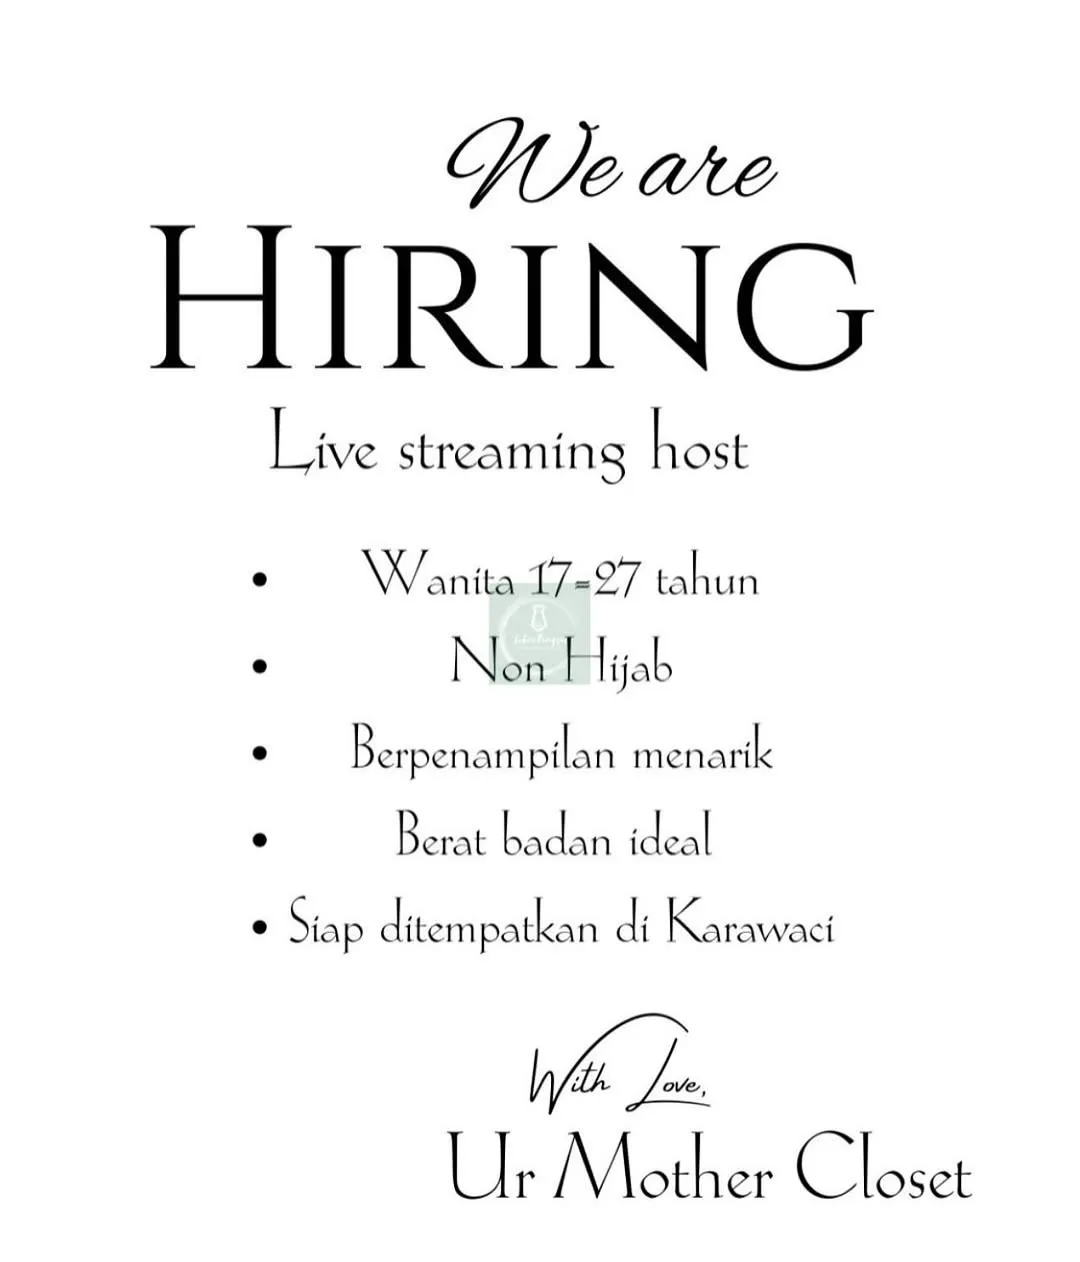 We are
HIRING
Live streaming host
• Wanita 17-27 tahun
• Non Hijab
• Berpenampilan menarik
• Berat badan ideal
• Siap ditempatkan di Karawaci
With Love,
Ur Mother Closet